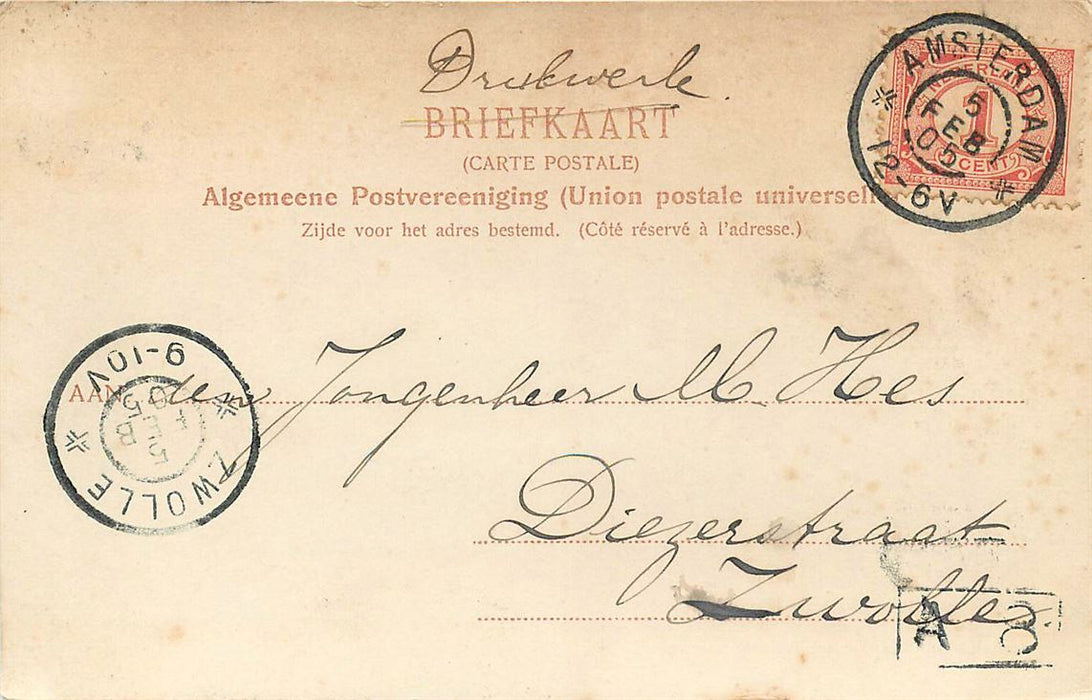 Drukwerk.
BRIEFKAART
(CARTE POSTALE)
Algemeene Postvereeniging (Union postale universell
Zijde voor het adres bestemd. (Côté réservé à l'adresse.)
NEDERLAND
1
CENT
AMSTERDAM
5
FEB
05
12-6V
AAN den Jongenheer M. Hes
Diezerstraat
Zwolle.
ZWOLLE
5
FEB
05
9-10V
A 8